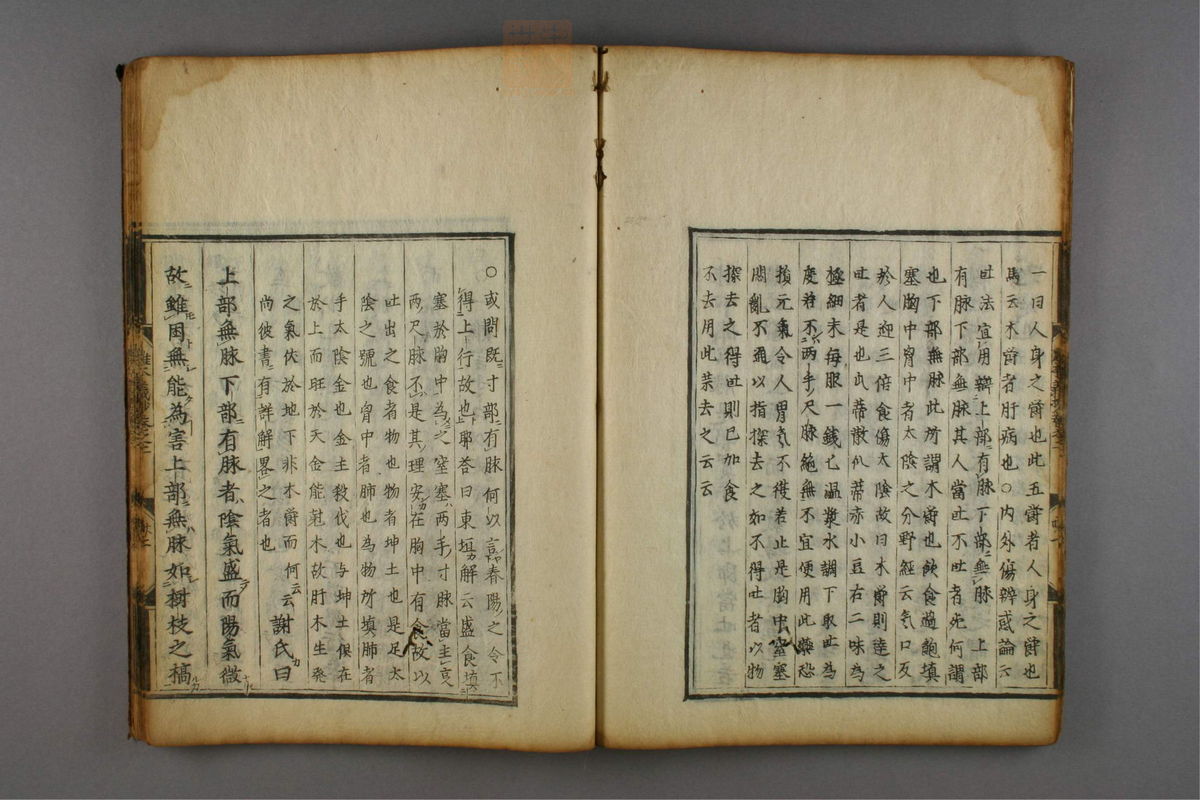 一曰人身之欝也此五欝者人身之欝也
馬云木欝者肝病也○内外傷辨惑論云
吐法宜用辨上部有脉下部無脉 上部
有脉下部無脉其人當吐不吐者死何謂
也下部無脉此所謂木欝也飲食過飽填
塞胸中胷中者太陰之分野經云气口反
於人迎三倍食傷太陰故曰木欝則達之
吐者是也瓜蒂散瓜蒂赤小豆右二味為
極細末每服一錢匕温漿水調下取吐為
度若不兩手尺脉絶無不宜便用此藥恐
損元氣令人胃气不復若止是胸中窒塞
悶亂不通以指探去之如不得吐者以物
探去之得吐則已加食
不去用此藥去之云云
○或問既寸部有脉何以言春陽之令不
得上行故也耶荅曰東垣解云盛食填
塞於胸中為之窒塞兩手寸脉當主
兩尺脉不是其理安在胸中有食故以
吐出之食者物也物者坤土也是足太
陰之號也胷中者肺也為物所填肺者
手太陰金也金主殺伐也与坤土俱在
於上而旺於天金能尅木故肝木生發
之氣伏於地下非木欝而何云云謝氏曰
尚彼書有詳解畧之者也
上部無脉下部有脉者陰氣盛而陽氣微
故雖困無能為害上部無脉如樹枝之槁